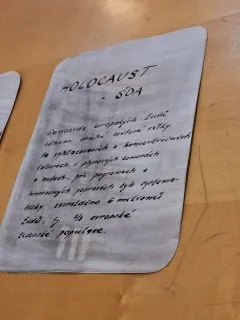 HOLOCAUST
- ŠOA
Genocida evropských Židů
během druhé světové války.
Ve vyhlazovacích a koncentračních
táborech, v plynových komorách
a autech, při pogromech a
hromadných popravách bylo systema-
ticky zavražděno 6 milionů
Židů, tj. 2/3 evropské
židovské populace.